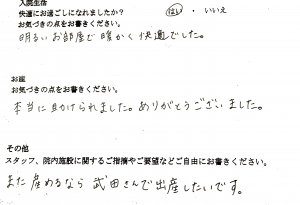 入院生活
快適にお過ごしになれましたか？ はい ・ いいえ
お気づきの点をお書きください。
明るいお部屋で暖かく快適でした。
お産
お気づきの点をお書きください。
本当に助けられました。ありがとうございました。
その他
スタッフ、院内施設に関するご指摘やご要望などご自由にお書きください。
また産めるなら武田さんで出産したいです。